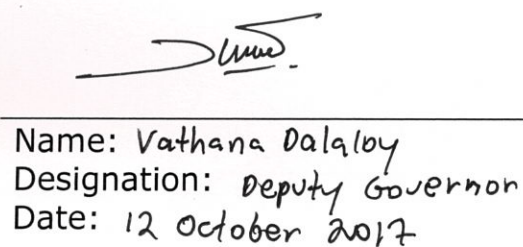 Name: Vathana Dalaloy
Designation: Deputy Governor
Date: 12 October 2017